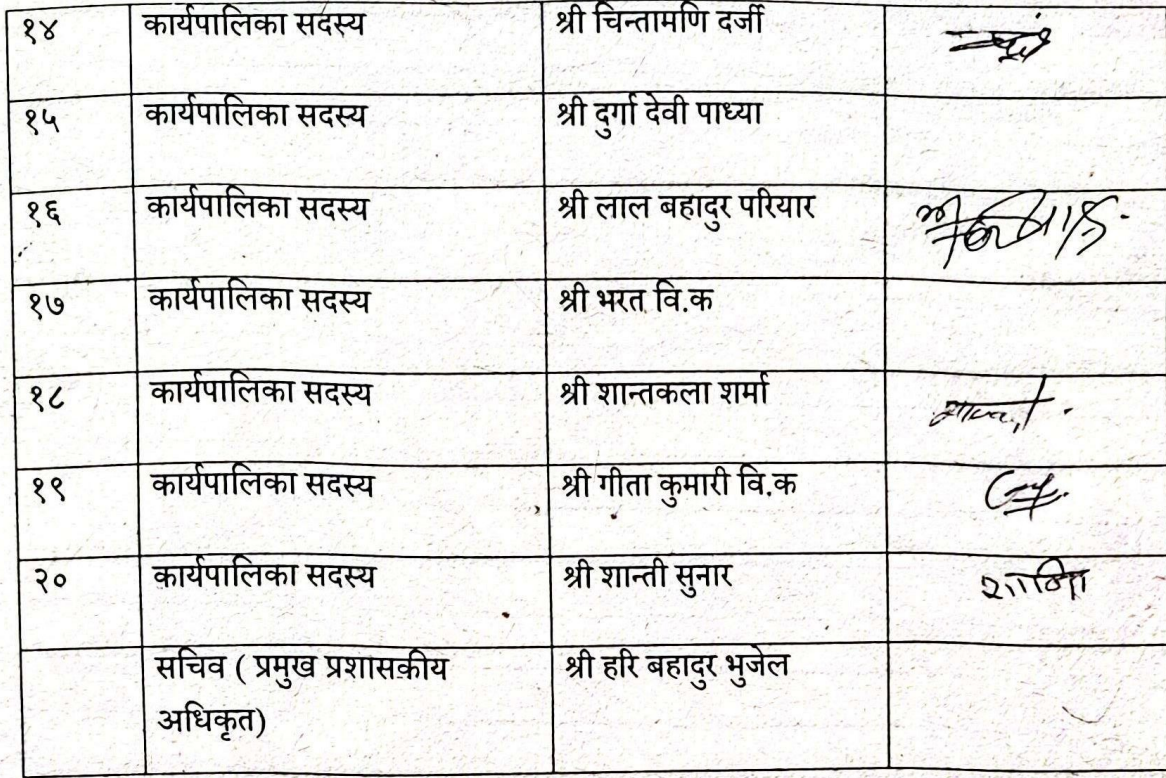 १४ कार्यपालिका सदस्य श्री चिन्तामणि दर्जी
१५ कार्यपालिका सदस्य श्री दुर्गा देवी पाध्या
१६ कार्यपालिका सदस्य श्री लाल बहादुर परियार
१७ कार्यपालिका सदस्य श्री भरत वि.क
१८ कार्यपालिका सदस्य श्री शान्तकला शर्मा
१९ कार्यपालिका सदस्य श्री गीता कुमारी वि.क
२० कार्यपालिका सदस्य श्री शान्ती सुनार
सचिव ( प्रमुख प्रशासकीय श्री हरि बहादुर भुजेल
अधिकृत)